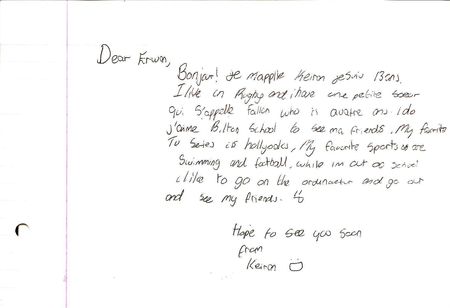 Dear Erwan,
Bonjour! Je mapplle Keiron Je suis 13ans.
I live in Rugby and i have une petite soeur
qui s'appelle Fallon who is quatre ans I do
j'aime Bilton School to see ma friends. My favorite
TV Series is hollyoaks, My favorite sports are
Swimming and football, while im out of school
i like to go on the ordinateur and go out
and see my friends.
Hope to see you soon
from
Keiron